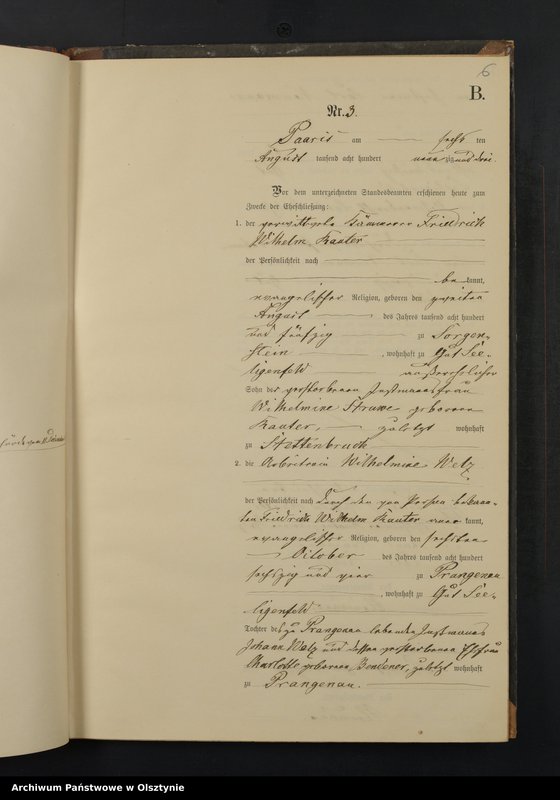 6
B.
Nr. 3.
Paaris am sechs ten
August tausend acht hundert neunzig und drei.
Vor dem unterzeichneten Standesbeamten erschienen heute zum
Zwecke der Eheschließung:
1. der verwittwete Kämmerer Friedrich
Wilhelm Kauter
der Persönlichkeit nach
be kannt,
evangelischer Religion, geboren den zweiten
August des Jahres tausend acht hundert
und fünfzig zu Sorgen-
stein, wohnhaft zu Gut See-
ligenfeld außerehelicher
Sohn der verstorbenen Instmannsfrau
Wilhelmine Struwe geborenen
Kauter, zuletzt wohnhaft
zu Stettenbruch
2. die Arbeiterin Wilhelmine Welz
der Persönlichkeit nach durch den von Person bekann-
ten Friedrich Wilhelm Kauter aner kannt,
evangelischer Religion, geboren den sechsten
October des Jahres tausend acht hundert
sechszig und vier zu Prangenau
, wohnhaft zu Gut See-
ligenfeld
Tochter des zu Prangenau lebenden Instmanns
Johann Welz und dessen verstorbenen Ehefrau
Charlotte geborenen zuletzt wohnhaft
zu Prangenau.
Archiwum Państwowe w Olsztynie